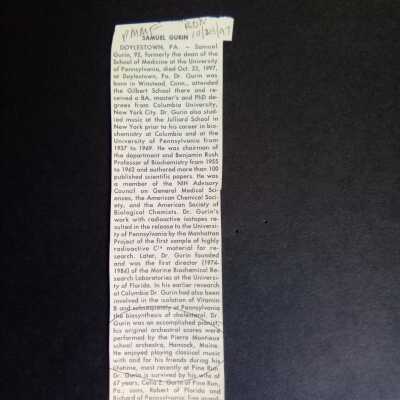 SAMUEL GURIN
10/28/97
DOYLESTOWN, PA. – Samuel
Gurin, 92, formerly the dean of the
School of Medicine at the University
of Pennsylvania, died Oct. 22, 1997,
at Doylestown, Pa. Dr. Gurin was
born in Winstead, Conn., attended
the Gilbert School there and re-
ceived a BA, master's and PhD de-
grees from Columbia University,
New York City. Dr. Gurin also stud-
ied music at the Julliard School in
New York prior to his career in bio-
chemistry at Columbia and at the
University of Pennsylvania from
1937 to 1969. He was chairman of
the department and Benjamin Rush
Professor of Biochemistry from 1955
to 1962 and authored more than 100
published scientific papers. He was
a member of the NIH Advisory
Council on General Medical Sci-
ences, the American Chemical Soci-
ety, and the American Society of
Biological Chemists. Dr. Gurin's
work with radioactive isotopes re-
sulted in the release to the Universi-
ty of Pennsylvania by the Manhattan
Project of the first sample of highly
radioactive C¹⁴ material for re-
search. Later, Dr. Gurin founded
and was the first director (1974-
1984) of the Marine Biochemical Re-
search Laboratories at the Universi-
ty of Florida. In his earlier research
at Columbia Dr. Gurin had also been
involved in the isolation of Vitamin
B and subsequently at Pennsylvania
the biosynthesis of cholesterol. Dr.
Gurin was an accomplished pianist,
his original orchestral scores were
performed by the Pierre Monteux
school orchestra, Hancock, Maine.
He enjoyed playing classical music
with and for his friends during his
lifetime, most recently at Fine Run.
Dr. Gurin is survived by his wife of
67 years, Celia Z. Gurin of Fine Run,
Pa.; sons, Robert of Florida and
Richard of Pennsylvania; five grand